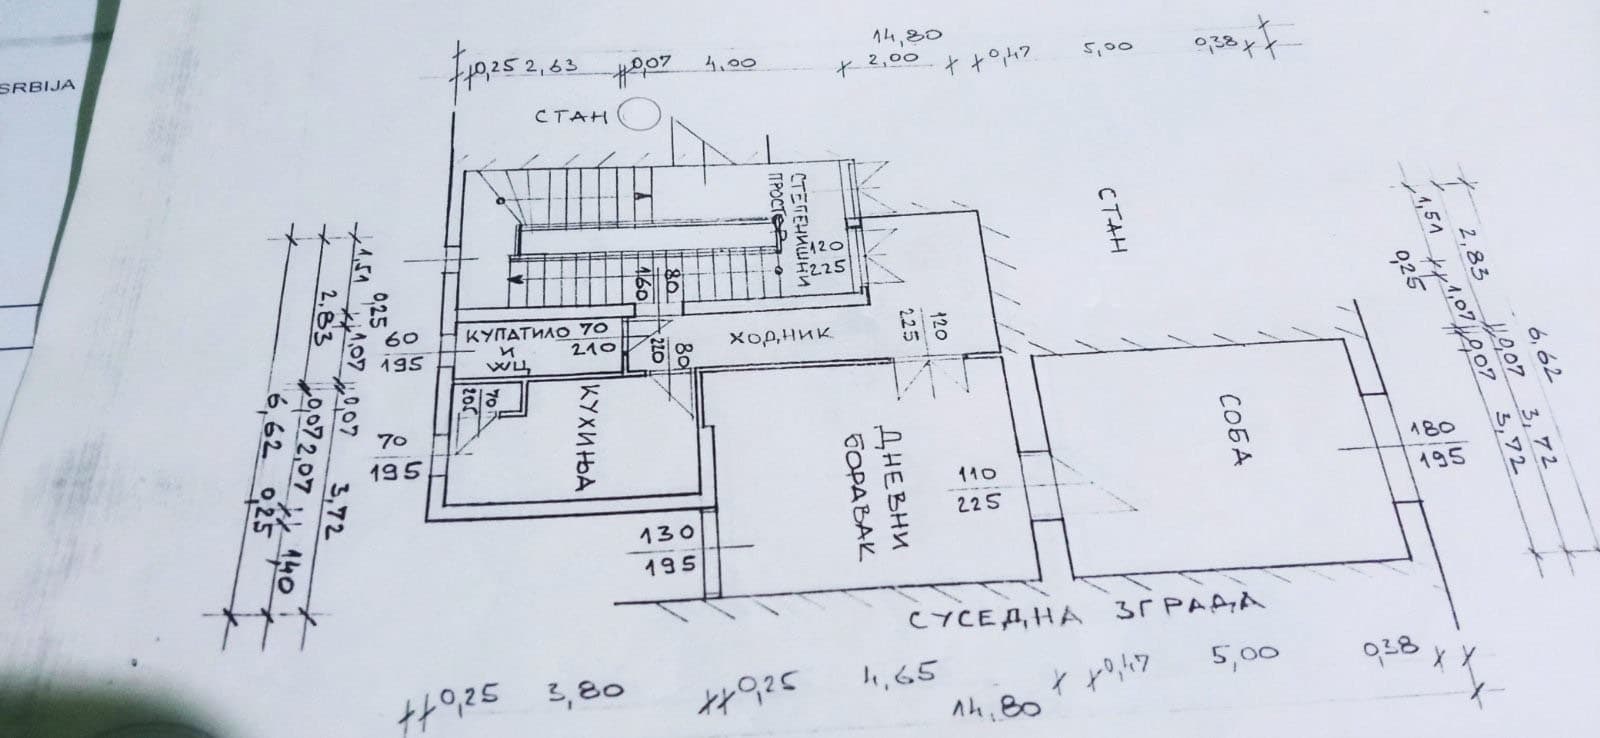 SRBIJA
14,80
0,25 2,63 0,07 4,00 2,00 0,47 5,00 0,38
СТАН
СТЕПЕНИШНИ
ПРОСТОР
120
225
СТАН
80
160
КУПАТИЛО
И
WЦ
70
210
60
195
80
210
ХОДНИК
120
225
70
205
КУХИЊА
70
195
ДНЕВНИ
БОРАВАК
110
225
СОБА
180
195
130
195
СУСЕДНА ЗГРАДА
1,51 0,25 1,07 0,07 3,72
2,83 0,07 2,07 1,40
6,62 0,25
1,51 0,25 1,07 0,07 3,72
2,83 0,07 3,72
6,62
0,25 3,80 0,25 4,65 0,47 5,00 0,38
14,80